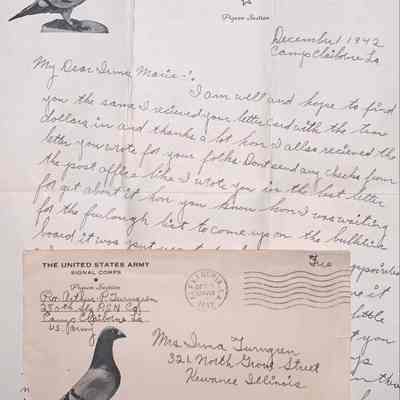 Pigeon Section
December 1 1942
Camp Claiborne La
My Dear Irma Marie-!
I am well and hope to find
you the same. I recieved your letter/card with the two
dollars in and thanks a lot hon. I also recieved the
letter you wrote for your folks. Dont send any checks from
the post office like I wrote you in the last letter
forget about it hon you know hon I was waiting
for the furlough list to come up on the bulletin
board, it was put
it
little
you
THE UNITED STATES ARMY
SIGNAL CORPS
Pigeon Section
Pvt. Arthur P. Turngren
280th Sig. Pgn. Co.
Camp Claiborne La
U.S. Army
ALEXANDRIA
1942
Free
Mrs Irma Turngren
321 North Grove Street
Kewanee Illinois